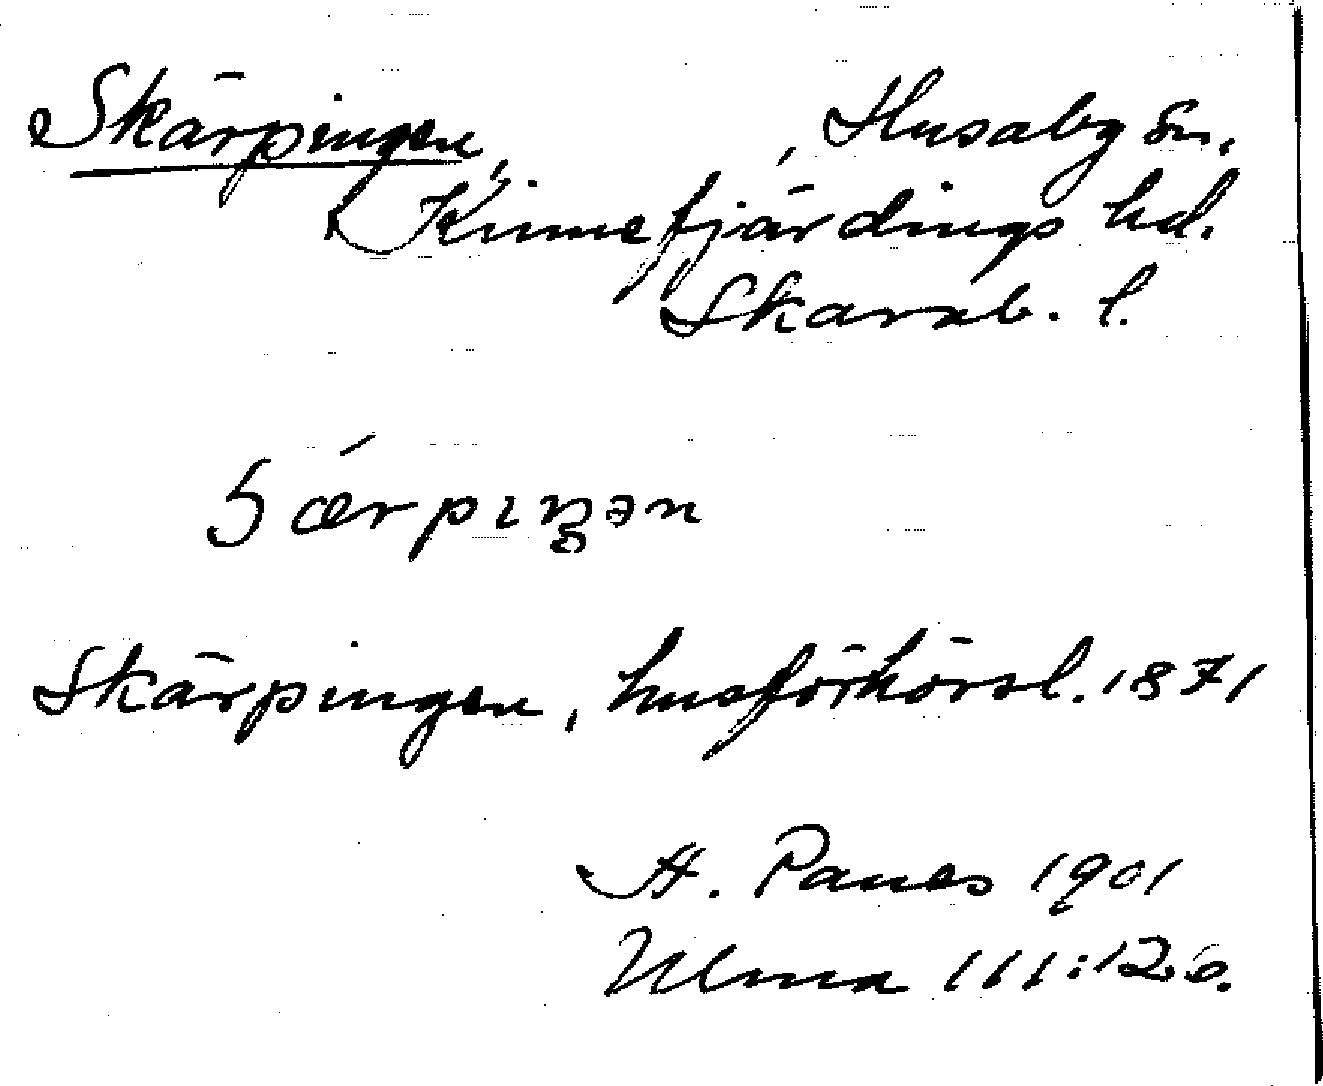 Skärpingen, , Husaby sn.
Kinnefjärdings hd.
Skarab. l.
Skärpingen, husförhörsl. 1871
A. Ranes 1901
Ulma 111:12.6.